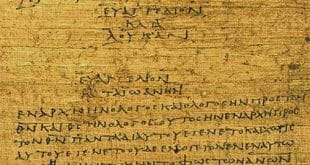 ΕΥΑΓΓΕΛΙΟΝ
ΚΑΤΑ
ΛΟΥΚΑΝ
ΕΥΑΓΓΕΛΙΟΝ
ΚΑΤΑ ΙΩΑΝΗΝ
ΕΝΑΡΧΗΗΝΟΛΟΓΟΣΚΑΙΟΛΟΓΟΣΗΝΠΡΟΣΤΟΝ
ΘΝΚΑΙΘΣΗΝΟΛΟΓΟΣΟΥΤΟΣΗΝΕΝΑΡΧΗΠΡΟΣ
ΤΟΝΘΝΠΑΝΤΑΔΙΑΥΤΟΥΕΓΕΝΕΤΟΚΑΙΧΩΡΙΣ
ΑΥΤΟΥΕΓΕΝΕΤΟΟΥΔΕΕΝ
ΦΩΣΤΩΝΑΝΩΝ